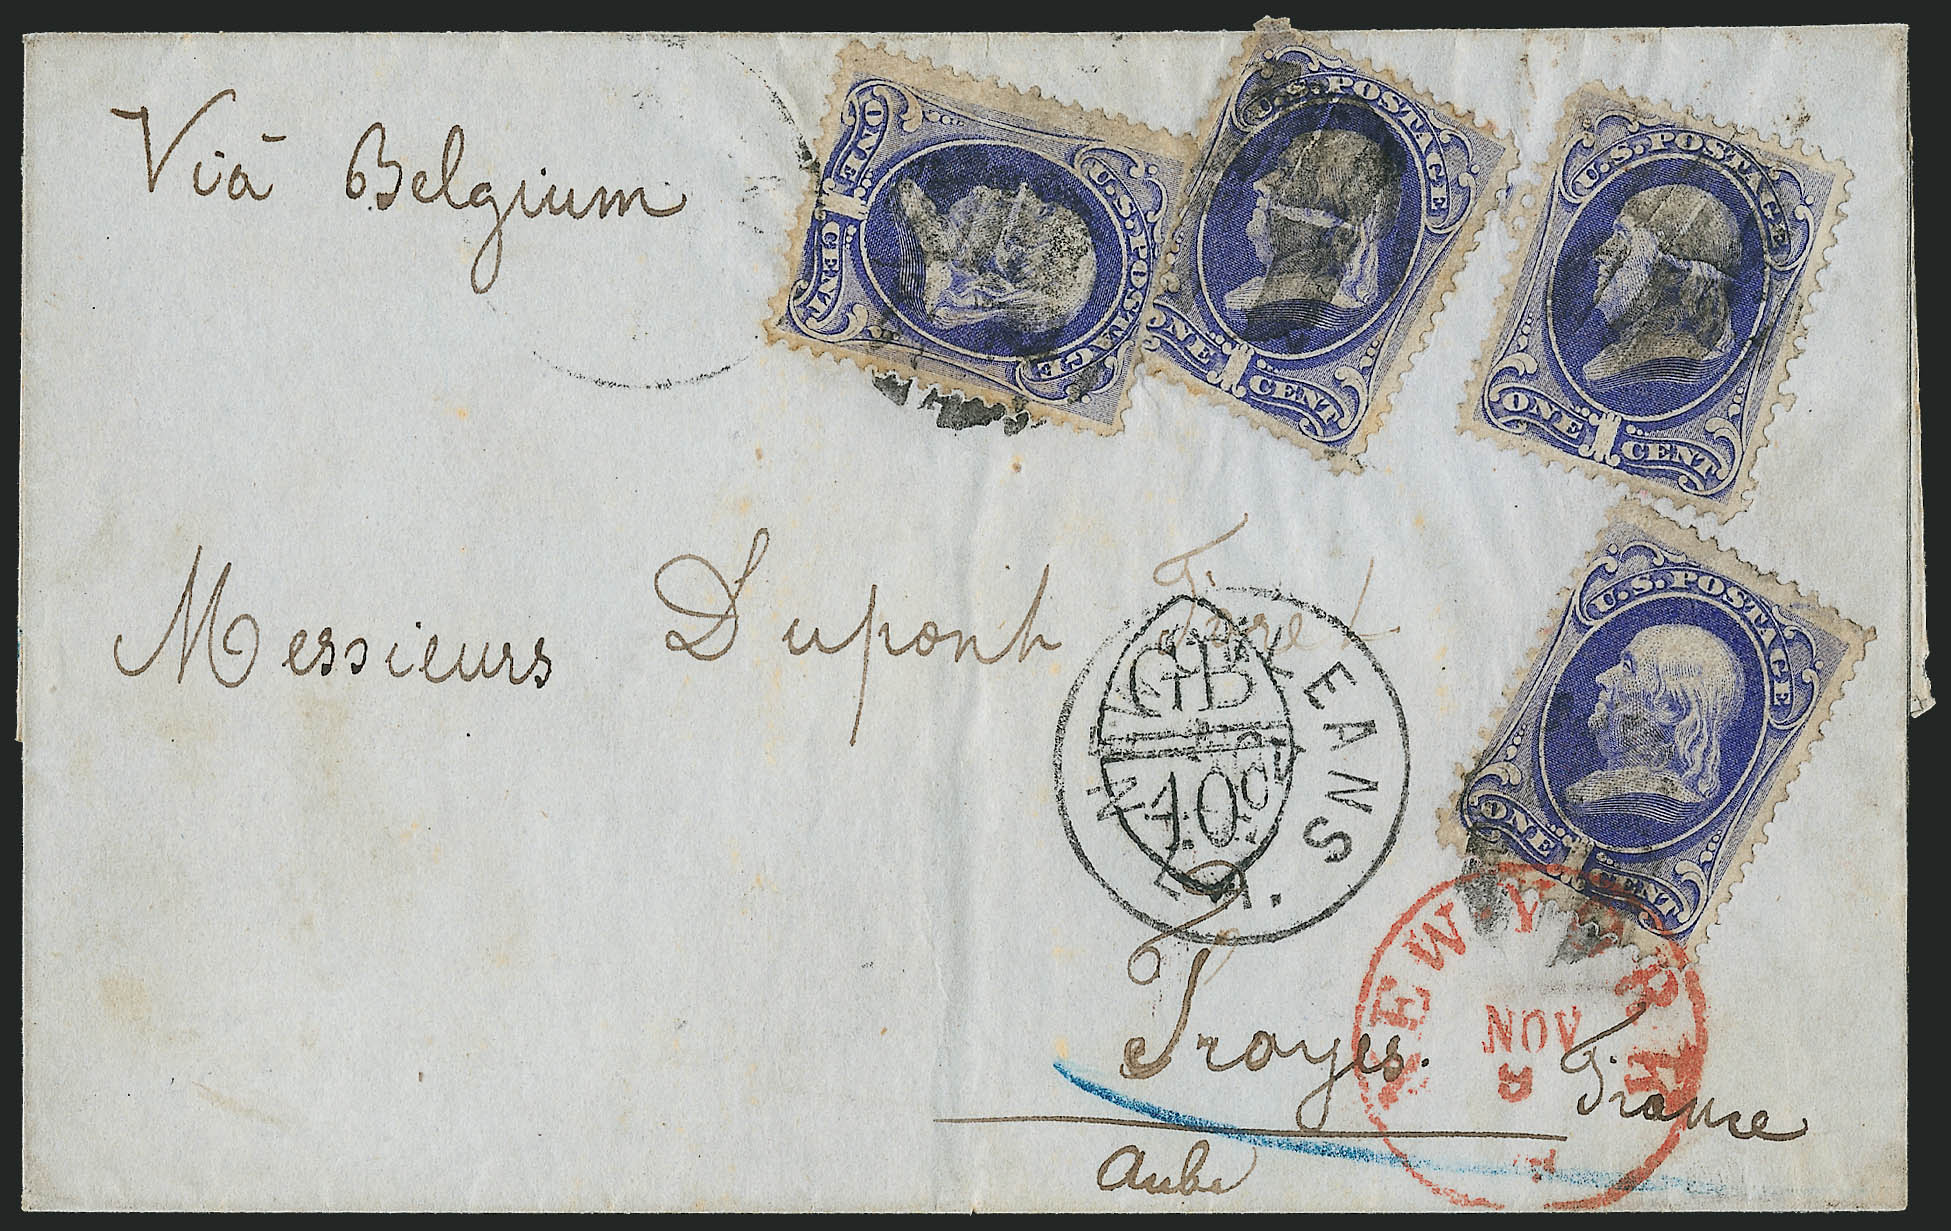 Viā Belgium
U.S. POSTAGE
ONE 1 CENT
U.S. POSTAGE
ONE 1 CENT
U.S. POSTAGE
ONE 1 CENT
U.S. POSTAGE
ONE 1 CENT
Messieurs Dupont
GB
40c
NEW ORLEANS LA.
NEW YORK
NOV
8
Troyes. France
Aube